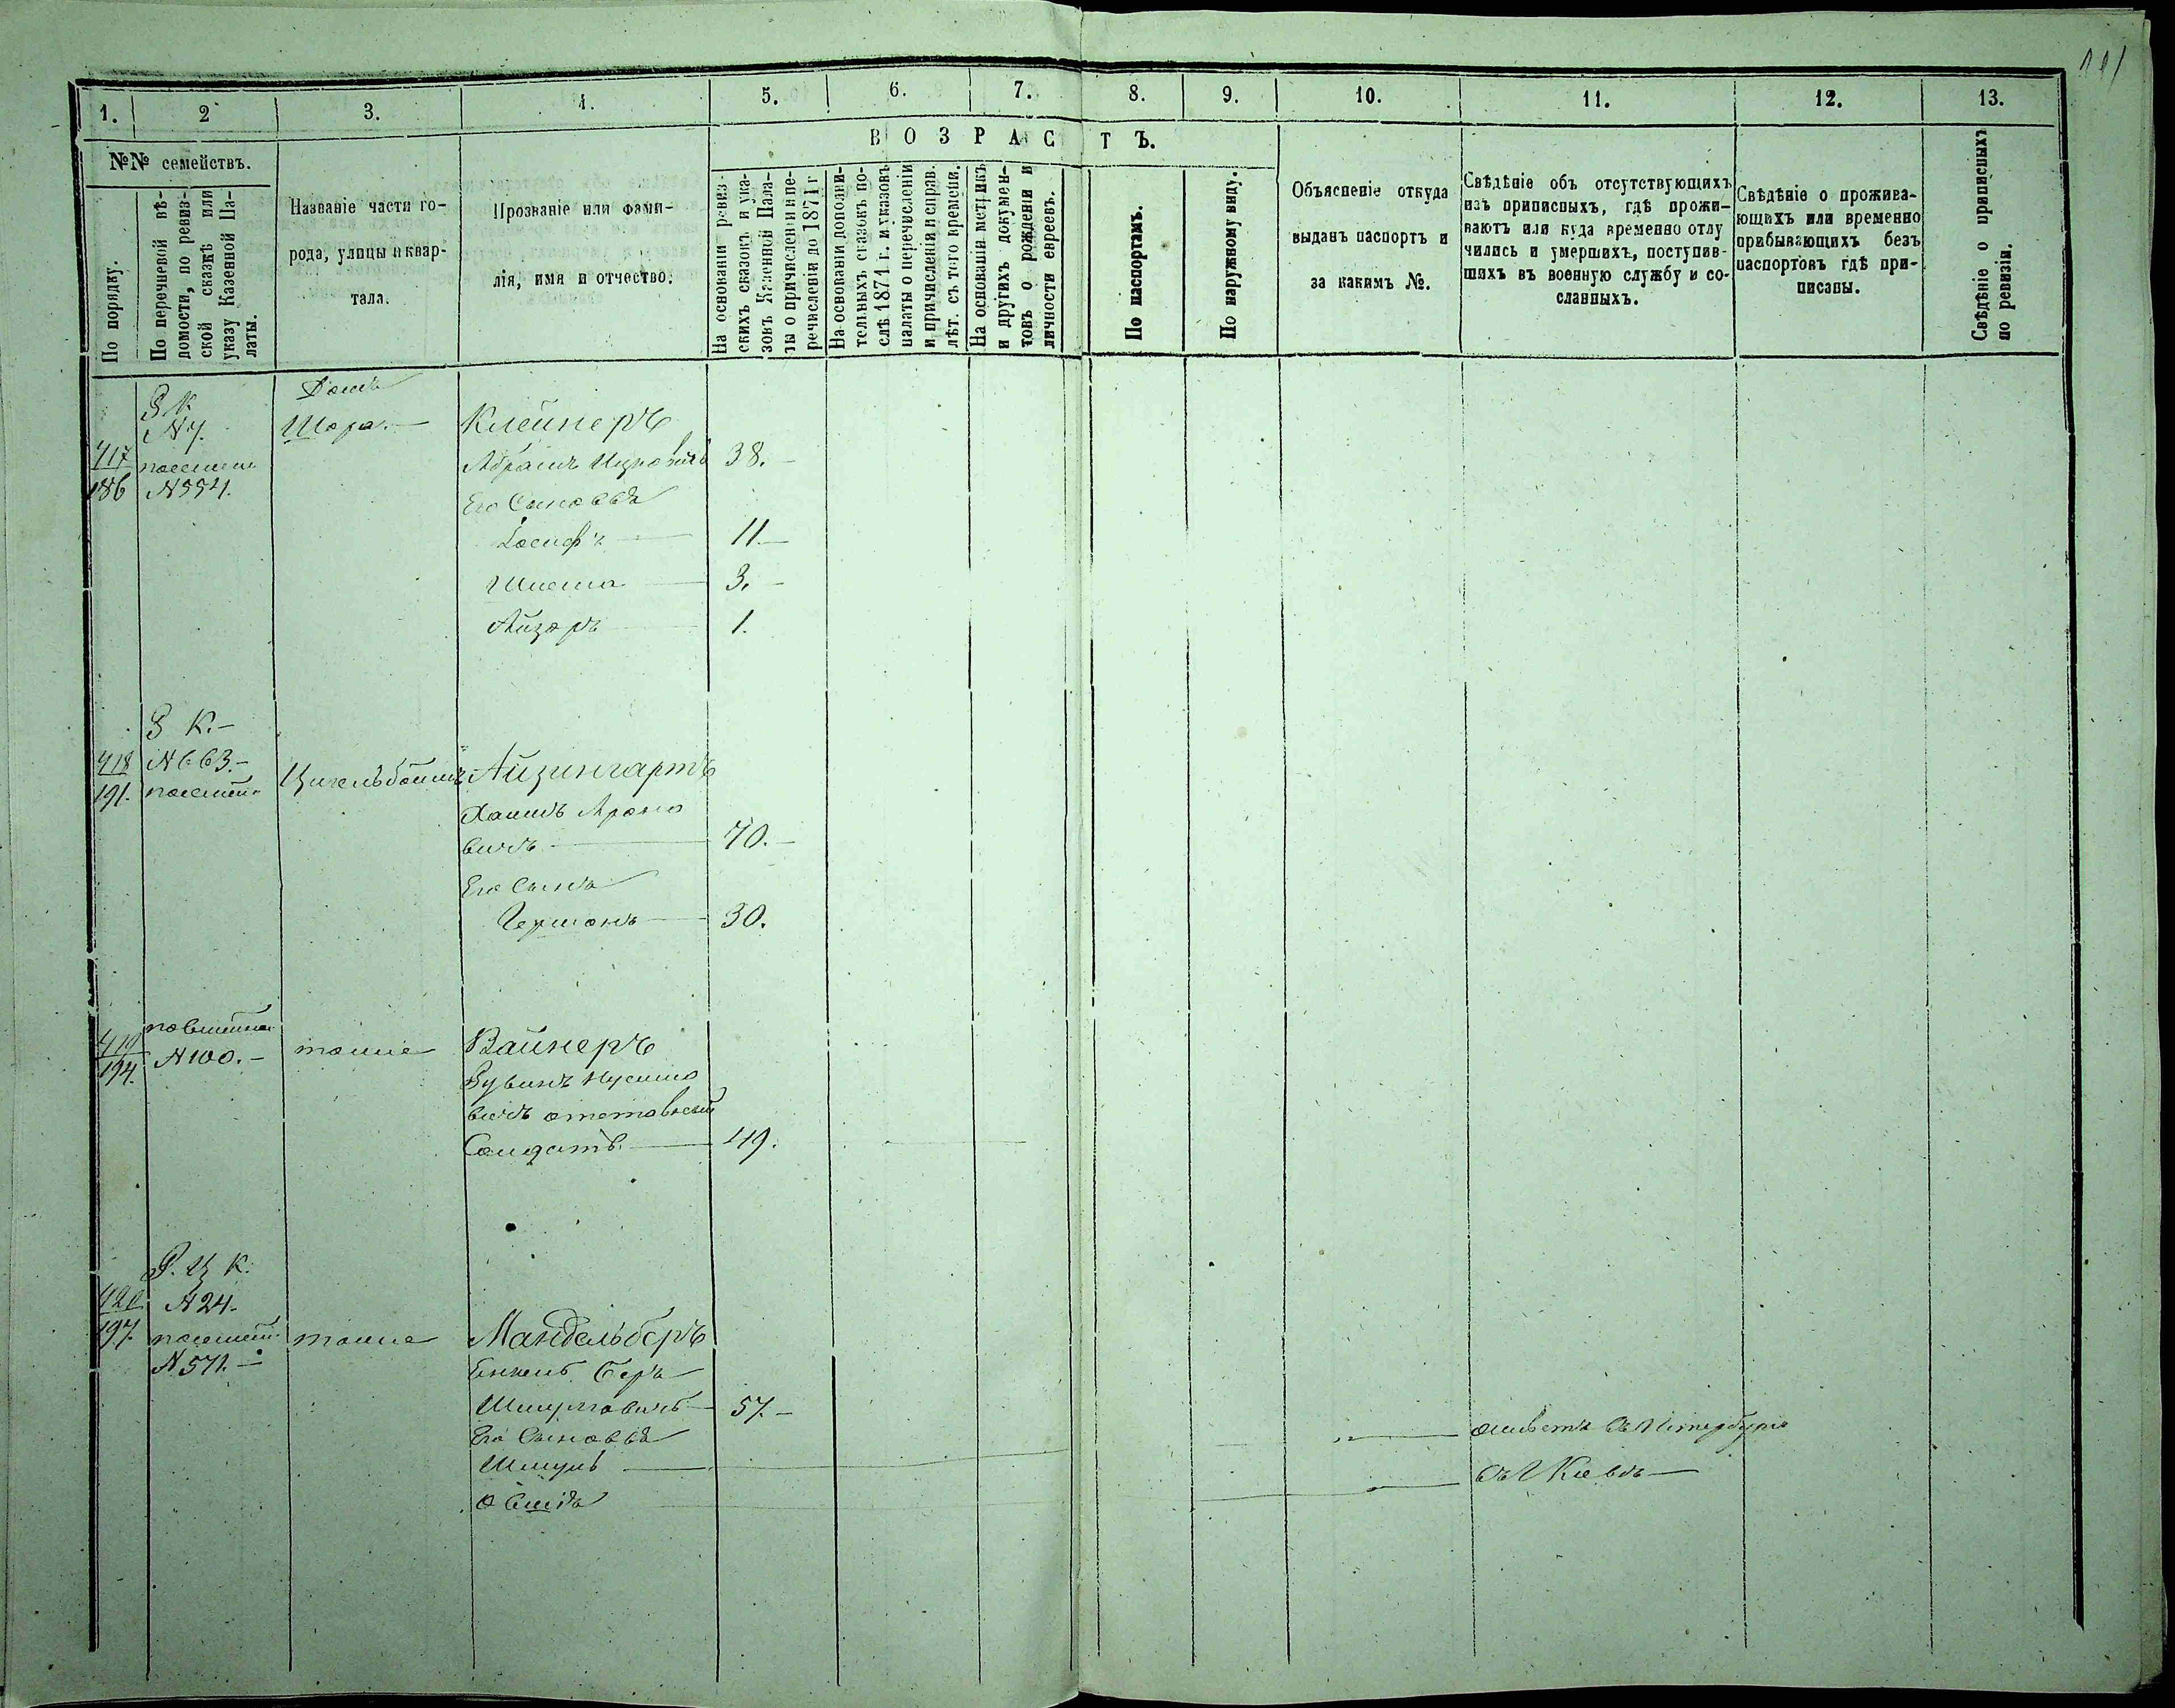 1. 2 3. 4. 5. 6. 7. 8. 9. 10. 11. 12. 13.
ВОЗРАСТЪ.
№№ семействъ.
По порядку.
По перечневой вѣ-
домости, по ревиз-
ской сказкѣ или
указу Казенной Па-
латы.
Названіе части го-
рода, улицы и квар-
тала.
Прозваніе или фами-
лія, имя и отчество.
На основаніи ревиз-
скихъ сказокъ и ука-
зовъ Казенной Пала-
ты о причислени и пе-
речислени до 1871 г
На основаніи дополни-
тельныхъ сказокъ по-
слѣ 1871 г. и указовъ
палаты о перечисленіи
и причисленіи и справ.
лѣт. съ того времени.
На основаніи метрикъ
и другихъ докумен-
товъ о рожденіи и
личности евреевъ.
По паспортамъ.
По наружному виду.
Объясненіе откуда
выданъ паспортъ и
за какимъ №.
Свѣдѣніе объ отсутствующихъ
изъ приписныхъ, гдѣ прожи-
ваютъ или куда временно отлу
чились и умершихъ, поступив-
шихъ въ военную службу и со-
сланныхъ.
Свѣдѣніе о прожива-
ющихъ или временно
прибывающихъ безъ
паспортовъ гдѣ при-
писаны.
Свѣдѣніе о приписныхъ
по ревизіи.
Домъ
Шора.
417
186
№ 554.
Клейнеръ
Абрамъ Ицковичъ 38.
Его Сыновья
Іосифъ 11.
3.
Айзоръ 1.
К.
418
191.
№ 663.
Цигельбоимъ
Айзингартъ
Хаимъ Ароно
вичъ 70.
Его Сынъ
Гершонъ 30.
419
194.
№ 100.
тоже
Вайнеръ
Рувинъ
вичъ отставной
Солдатъ 49.
К.
420
197.
№ 24.
№ 571.
тоже
Мандельберъ
Беръ
Шмулевичъ 57.
Его Сыновья
Шмуль
въ Петербурге
въ г Киевѣ